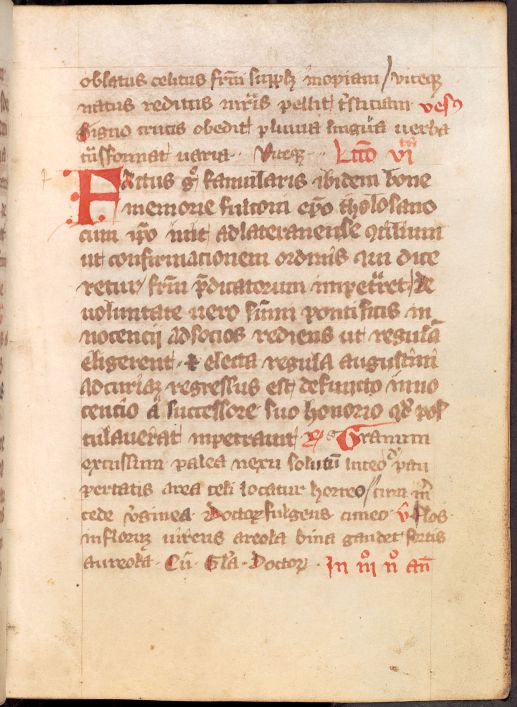 oblatus celitus frm̄ suppl₃ inopiam / viteqꝫ
natus reditus mr̄is pellit tr̄sticiam vers9
Signo crucis obedit pluuia lingua uerba
trāsformat uaria · Viteqꝫ · Lcc̄o vi
Factus gͦ familiaris ibidem bone
memorie fulconi ep̄o tholosano
cum ip̄o iuit ad lateranense ↄcilium
ut confirmacionem ordinis qui dice
retur fr̄m p̄dicatorum impetret / de
uoluntate uero sūmi pontificis in
nocencii ad socios rediens ut regulā
eligerent · electa regula augustini
ad curiaꝫ regressus est defuncto inno
cencio a successore suo honorio qd̄ pos
tulauerat impetrauit R̄s Granum
excussum palea nexu solutū luteo pau
pertatis area celi locatur horreo / cum m̄
cede uirginea doctor fulgens cuneo v̄ flos
in floriꝫ uirens areola bina gaudet sertis
aureola · Cū · Gl̄a · Doctor · In iii nͦ an̄